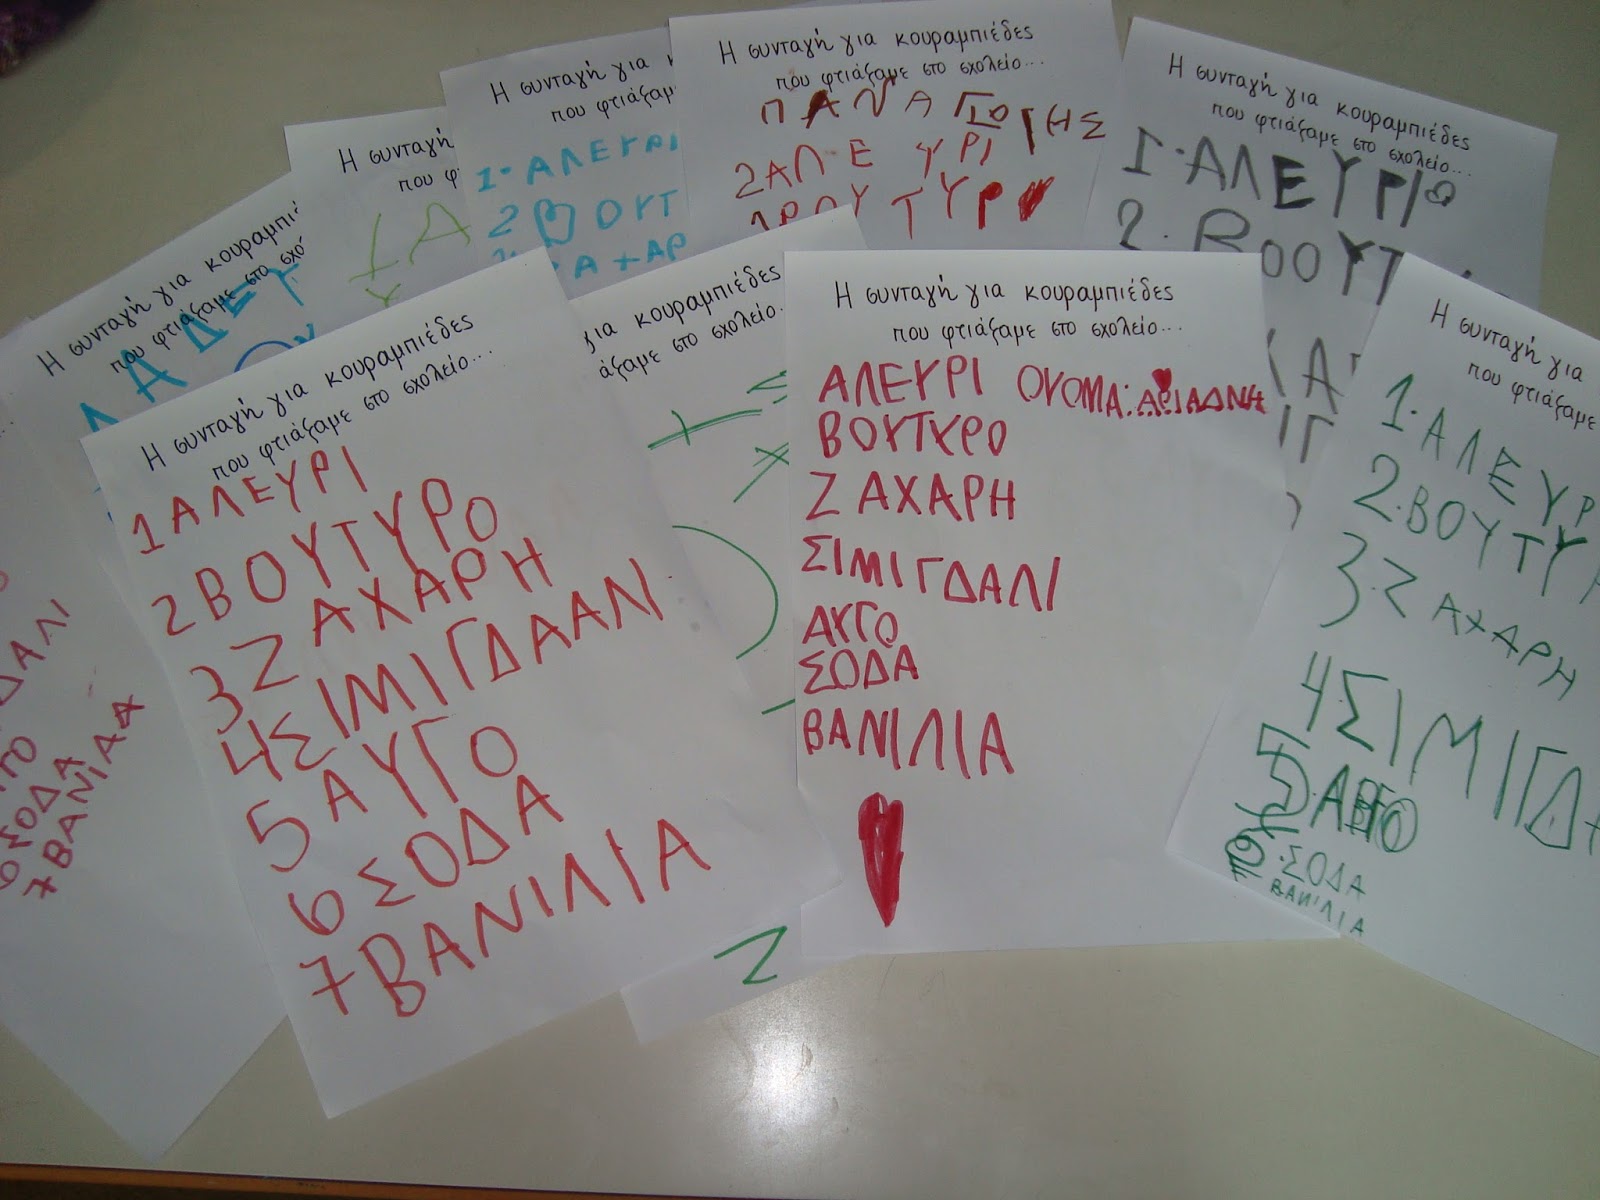 Η συνταγή για
που φτιάξαμε
1· ΑΛΕΥΡΙ
2 ΒΟΥΤ
ΑΧΑΡ
Η συνταγή για κουραμπιέδες
που φτιάξαμε στο σχολείο...
ΠΑΝΑΓΙΩΤΗΣ
2ΑΛΕΥΡΙ
ΒΟΥΤΥΡ
Η συνταγή για κουραμπιέδες
που φτιάξαμε στο σχολείο...
1·ΑΛΕΥΡΙ
2·ΒΟΟΥΤ
Η συνταγή
που
Η συνταγή για κουραμπιέ
που φτιάξαμε στο σχο
Η συνταγή για κουραμπιέδες
που φτιάξαμε στο σχολείο...
1ΑΛΕΥΡΙ
2ΒΟΥΤΥΡΟ
3ΖΑΧΑΡΗ
4ΣΙΜΙΓΔΑΛΝ
5ΑΥΓΟ
6ΣΟΔΑ
7ΒΑΝΙΛΙΑ
για κουραμπιέδες
άξαμε στο σχολείο..
Ζ
Η συνταγή για κουραμπιέδες
που φτιάξαμε στο σχολείο...
ΑΛΕΥΡΙ ΟΝΟΜΑ: ΑΡΙΑΔΝΗ
ΒΟΥΤΥΡΟ
ΖΑΧΑΡΗ
ΣΙΜΙΓΔΑΛΙ
ΑΥΓΟ
ΣΟΔΑ
ΒΑΝΙΛΙΑ
Η συνταγή για
που φτιάξαμε
1·ΑΛΕΥΡ
2·ΒΟΥΤΥ
3·ΖΑΧΑΡΗ
4ΣΙΜΙΓΔΑ
·ΣΟΔΑ
ΒΑΝΙΛΙΑ
ΔΑΛΙ
ΓΟ
6 ΣΟΔΑ
7ΒΑΝΙΑΑ